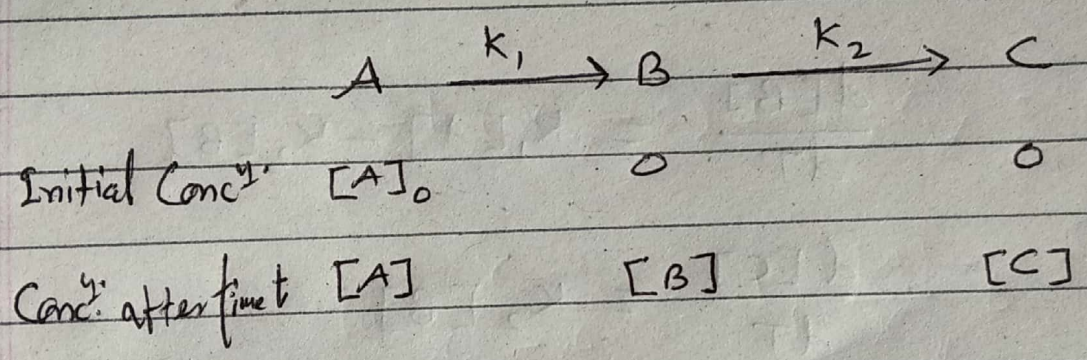 A K₁ → B K₂ → C
Initial Concⁿ. [A]₀ 0 0
Concⁿ. after time t [A] [B] [C]